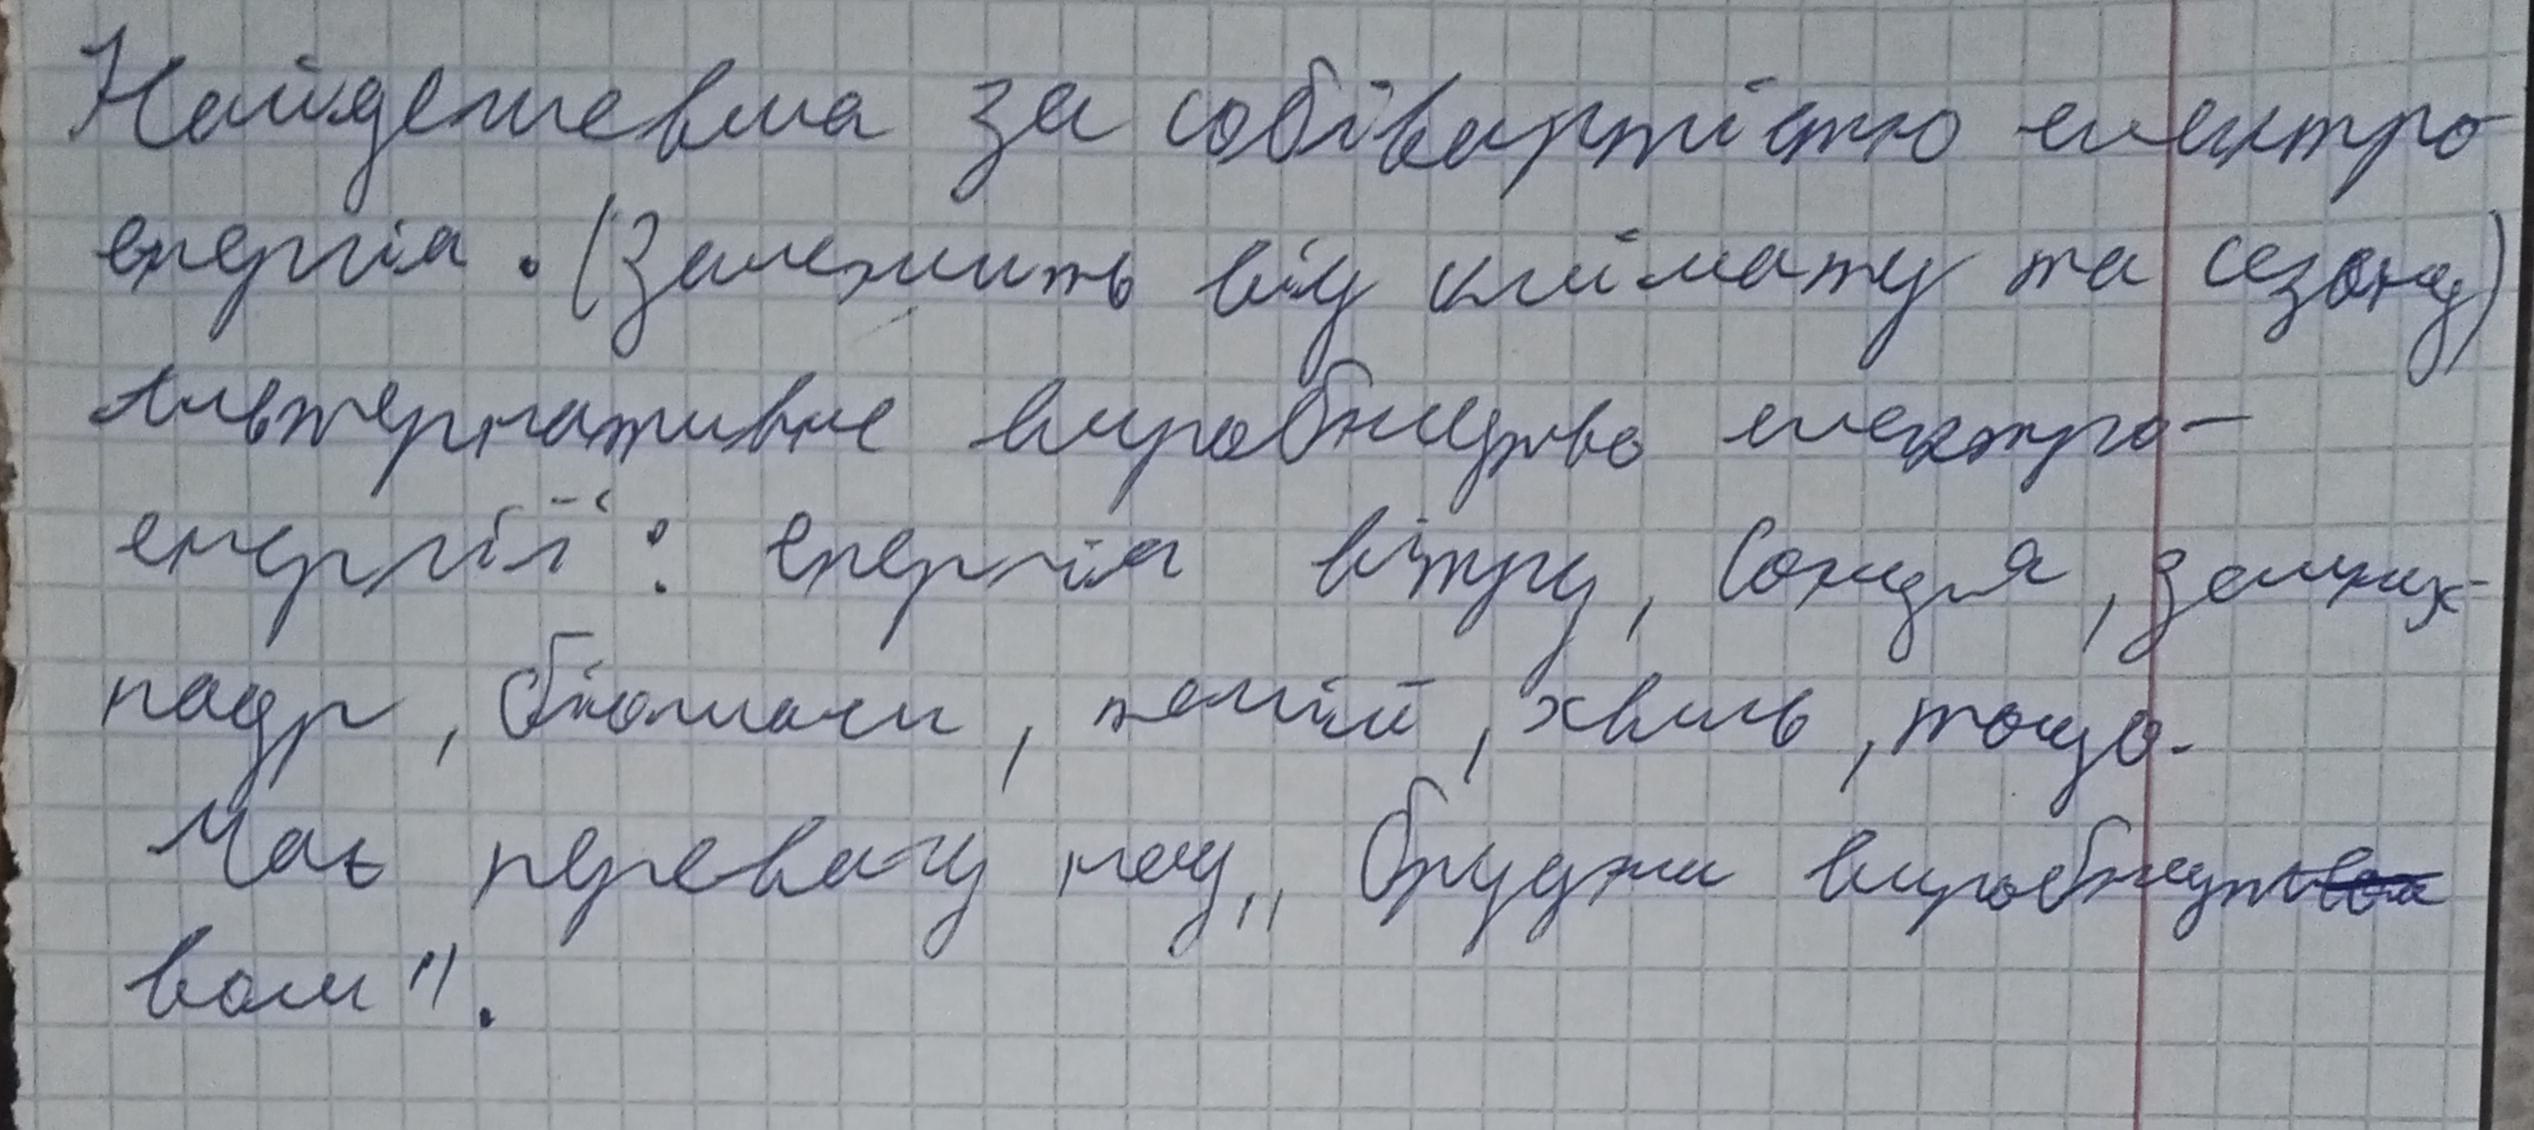 Найдешевша за собівартістю електро-
енергія. (Залежить від клімату та сезону)
Альтернативне виробництво електро-
енергії: енергія вітру, Сонця, земних
надр, біомаси, течій, хвиль, тощо.
Має перевагу над „ брудни виробницт
вом".